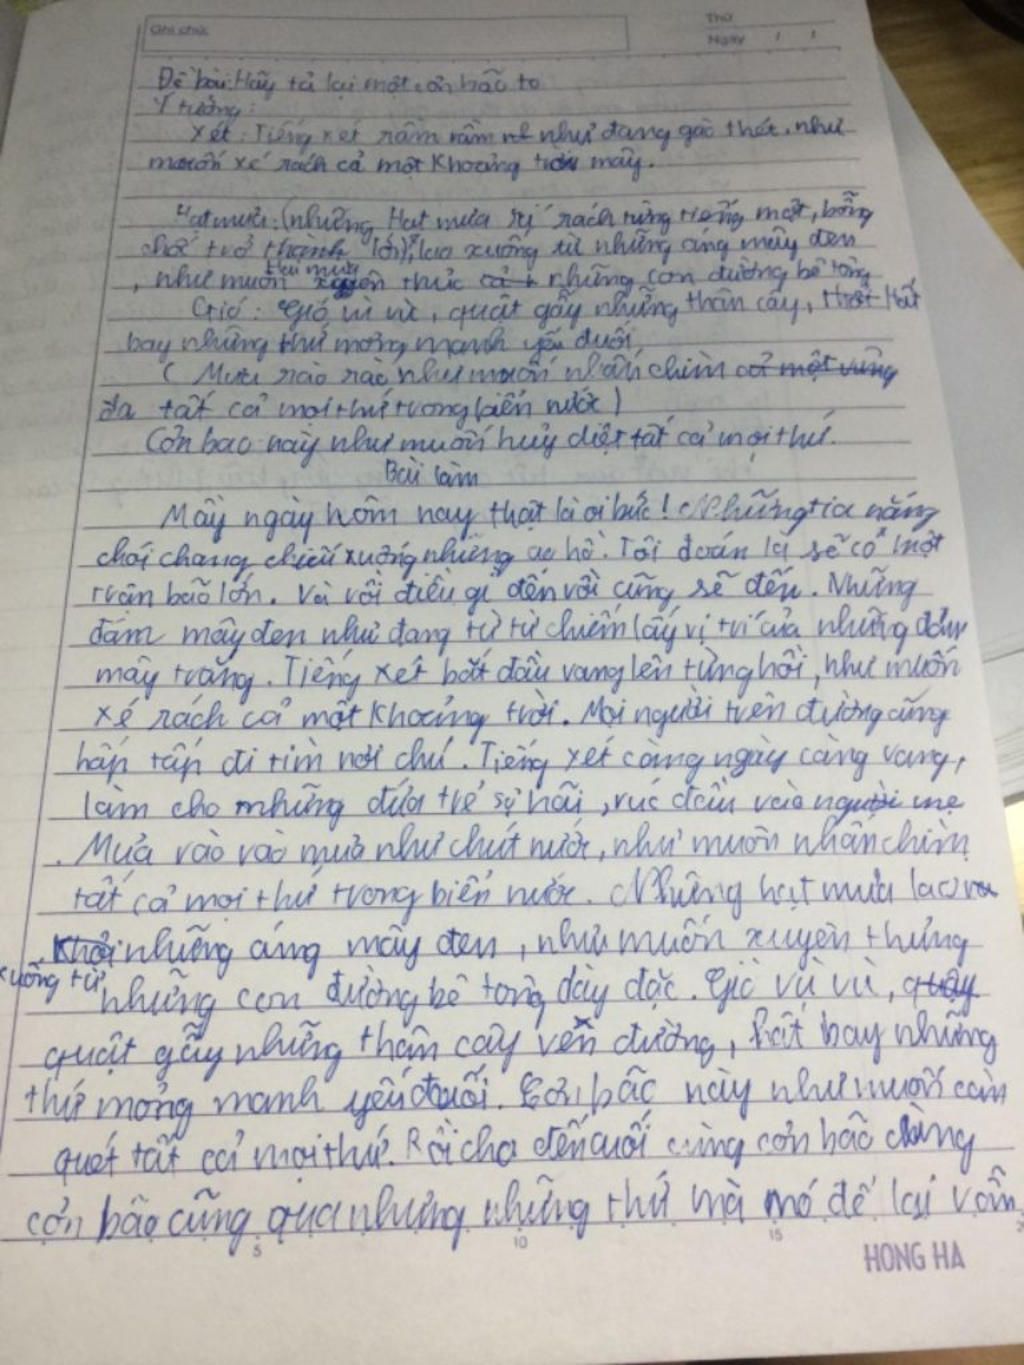 Ghi chú:
Thứ
Ngày / /
Đề bài: Hãy tả lại một cơn bão to
Ý tưởng:
Xét: Tiếng xét rầm rầm như đang gào thét, như
muốn xé rách cả một khoảng trời mây.
Hạt mưa: (những Hạt mưa rí rách từng tiếng một, bỗng
chốc trở thành lớn), lao xuống từ những áng mây đen
, như muốn xuyên thủc những con đường bê tông
Gió: Gió vù vù, quật gẫy những thân cây, Hất
bay những thứ mỏng manh yếu đuối,
( Mưa rào rào như muốn nhấn chìm cả một vùng
đa tất cả mọi thứ trong biển nước)
Cơn bao này như muốn huỷ diệt tất cả mọi thứ.
Bài làm
Mấy ngày hôm nay thật là oi bức! Những tia nắng
chói chang chiếu xuống những ao hồ. Tôi đoán là sẽ có một
trận bão lớn. Và rồi điều gì đến rồi cũng sẽ đến. Những
đám mây đen như đang từ từ chiếm lấy vị trí của những đám
mây trắng. Tiếng xét bắt đầu vang lên từng hồi, như muốn
xé rách cả một khoảng trời. Mọi người trên đường cũng
hấp tấp đi tìm nơi chú. Tiếng xét càng ngày càng vang,
làm cho những đứa trẻ sợ hãi, rúc đầu vào người mẹ
. Mưa rào rào mưa như chút nước, như muốn nhấn chìm
tất cả mọi thứ trong biển nước. Những hạt mưa lao
xuống từ những áng mây đen, như muốn xuyên thủng
những con đường bê tông dày đặc. Gió vù vù, quay
quật gẫy những thân cây vên đường, hất bay những
thứ mỏng manh yếu đuối. Cơn bão này như muốn càn
quét tất cả mọi thứ. Rồi cho đến cuối cùng cơn bão
cơn bão cũng qua nhưng những thứ mà nó để lại vẫn
5 10 15
HONG HA